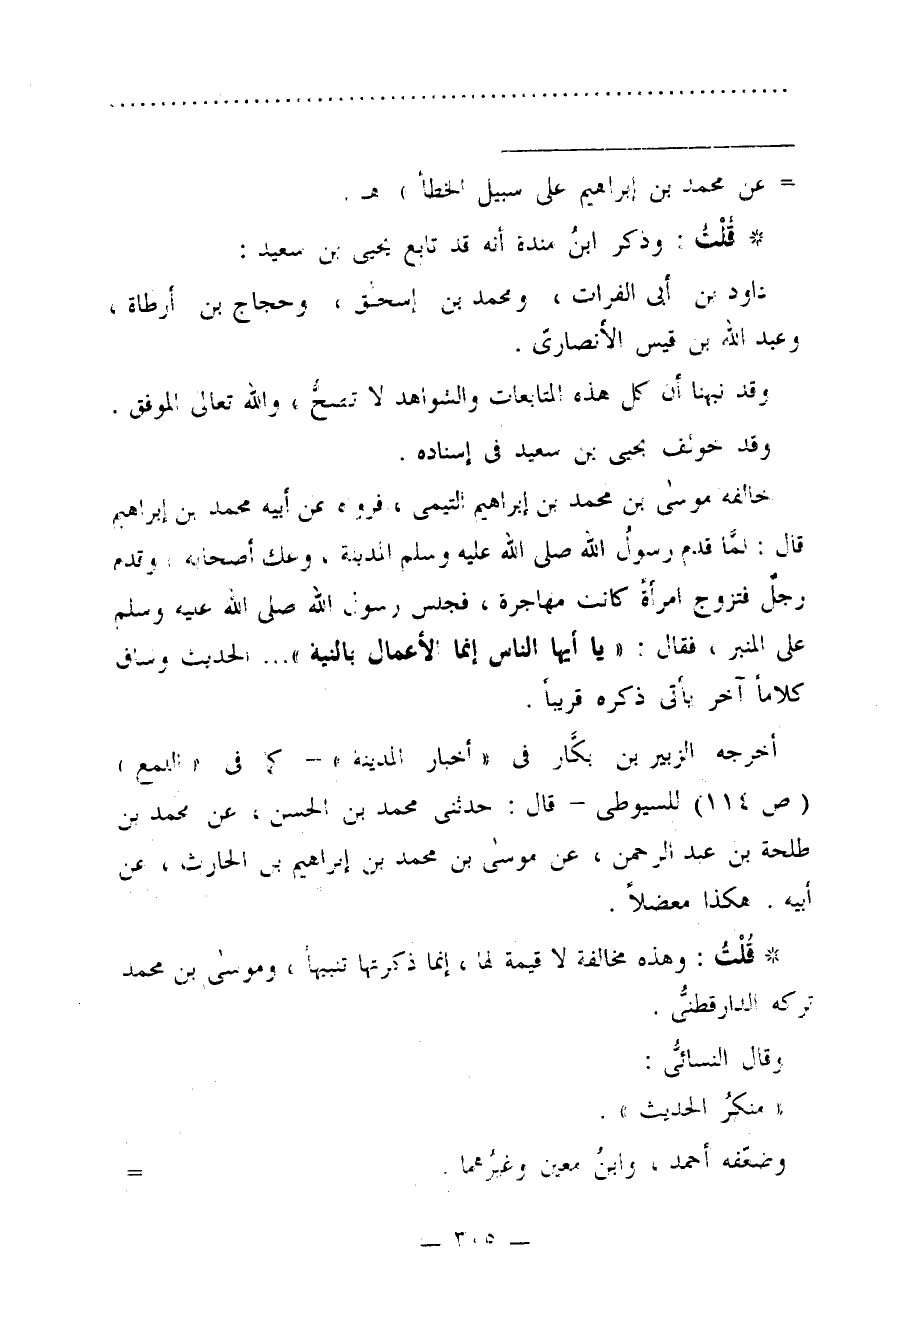 = عن محمد بن إبراهيم على سبيل الخطأ ) هـ .
* قُلْتُ : وذكر ابنُ مندة أنه قد تابع يحيى بن سعيد :
داود بن أبى الفرات ، ومحمد بن إسحٰق ، وحجاج بن أرطاة ،
وعبد الله بن قيس الأنصارىّ .
وقد نبهنا أن كل هذه المتابعات والشواهد لا تصحُّ ، والله تعالى الموفق .
وقد خولف يحيى بن سعيد فى إسناده .
خالفه موسىٰ بن محمد بن إبراهيم التيمى ، فرواه عن أبيه محمد بن إبراهيم
قال : لمَّا قدم رسولُ الله صلى الله عليه وسلم المدينة ، وعك أصحابه ، وقدم
رجلٌ فتزوج امرأةً كانت مهاجرة ، فجلس رسول الله صلى الله عليه وسلم
على المنبر ، فقال : « يا أيها الناس إنما الأعمال بالنية »... الحديث وساق
كلاماً آخر يأتى ذكره قريباً .
أخرجه الزبير بن بكَّار فى « أخبار المدينة » – كما فى « اللمع »
( ص ١١٤) للسيوطى – قال : حدثنى محمد بن الحسن ، عن محمد بن
طلحة بن عبد الرحمن ، عن موسىٰ بن محمد بن إبراهيم بن الحارث ، عن
أبيه . هكذا معضلاً .
* قُلْتُ : وهذه مخالفة لا قيمة لها ، إنما ذكرتها تنبيهاً ، وموسىٰ بن محمد
تركه الدارقطنىُّ .
وقال النسائىُّ :
« منكرُ الحديث » .
وضعّفه أحمد ، وابنُ معين وغيرُهما .
=
— ٣٠٥ —